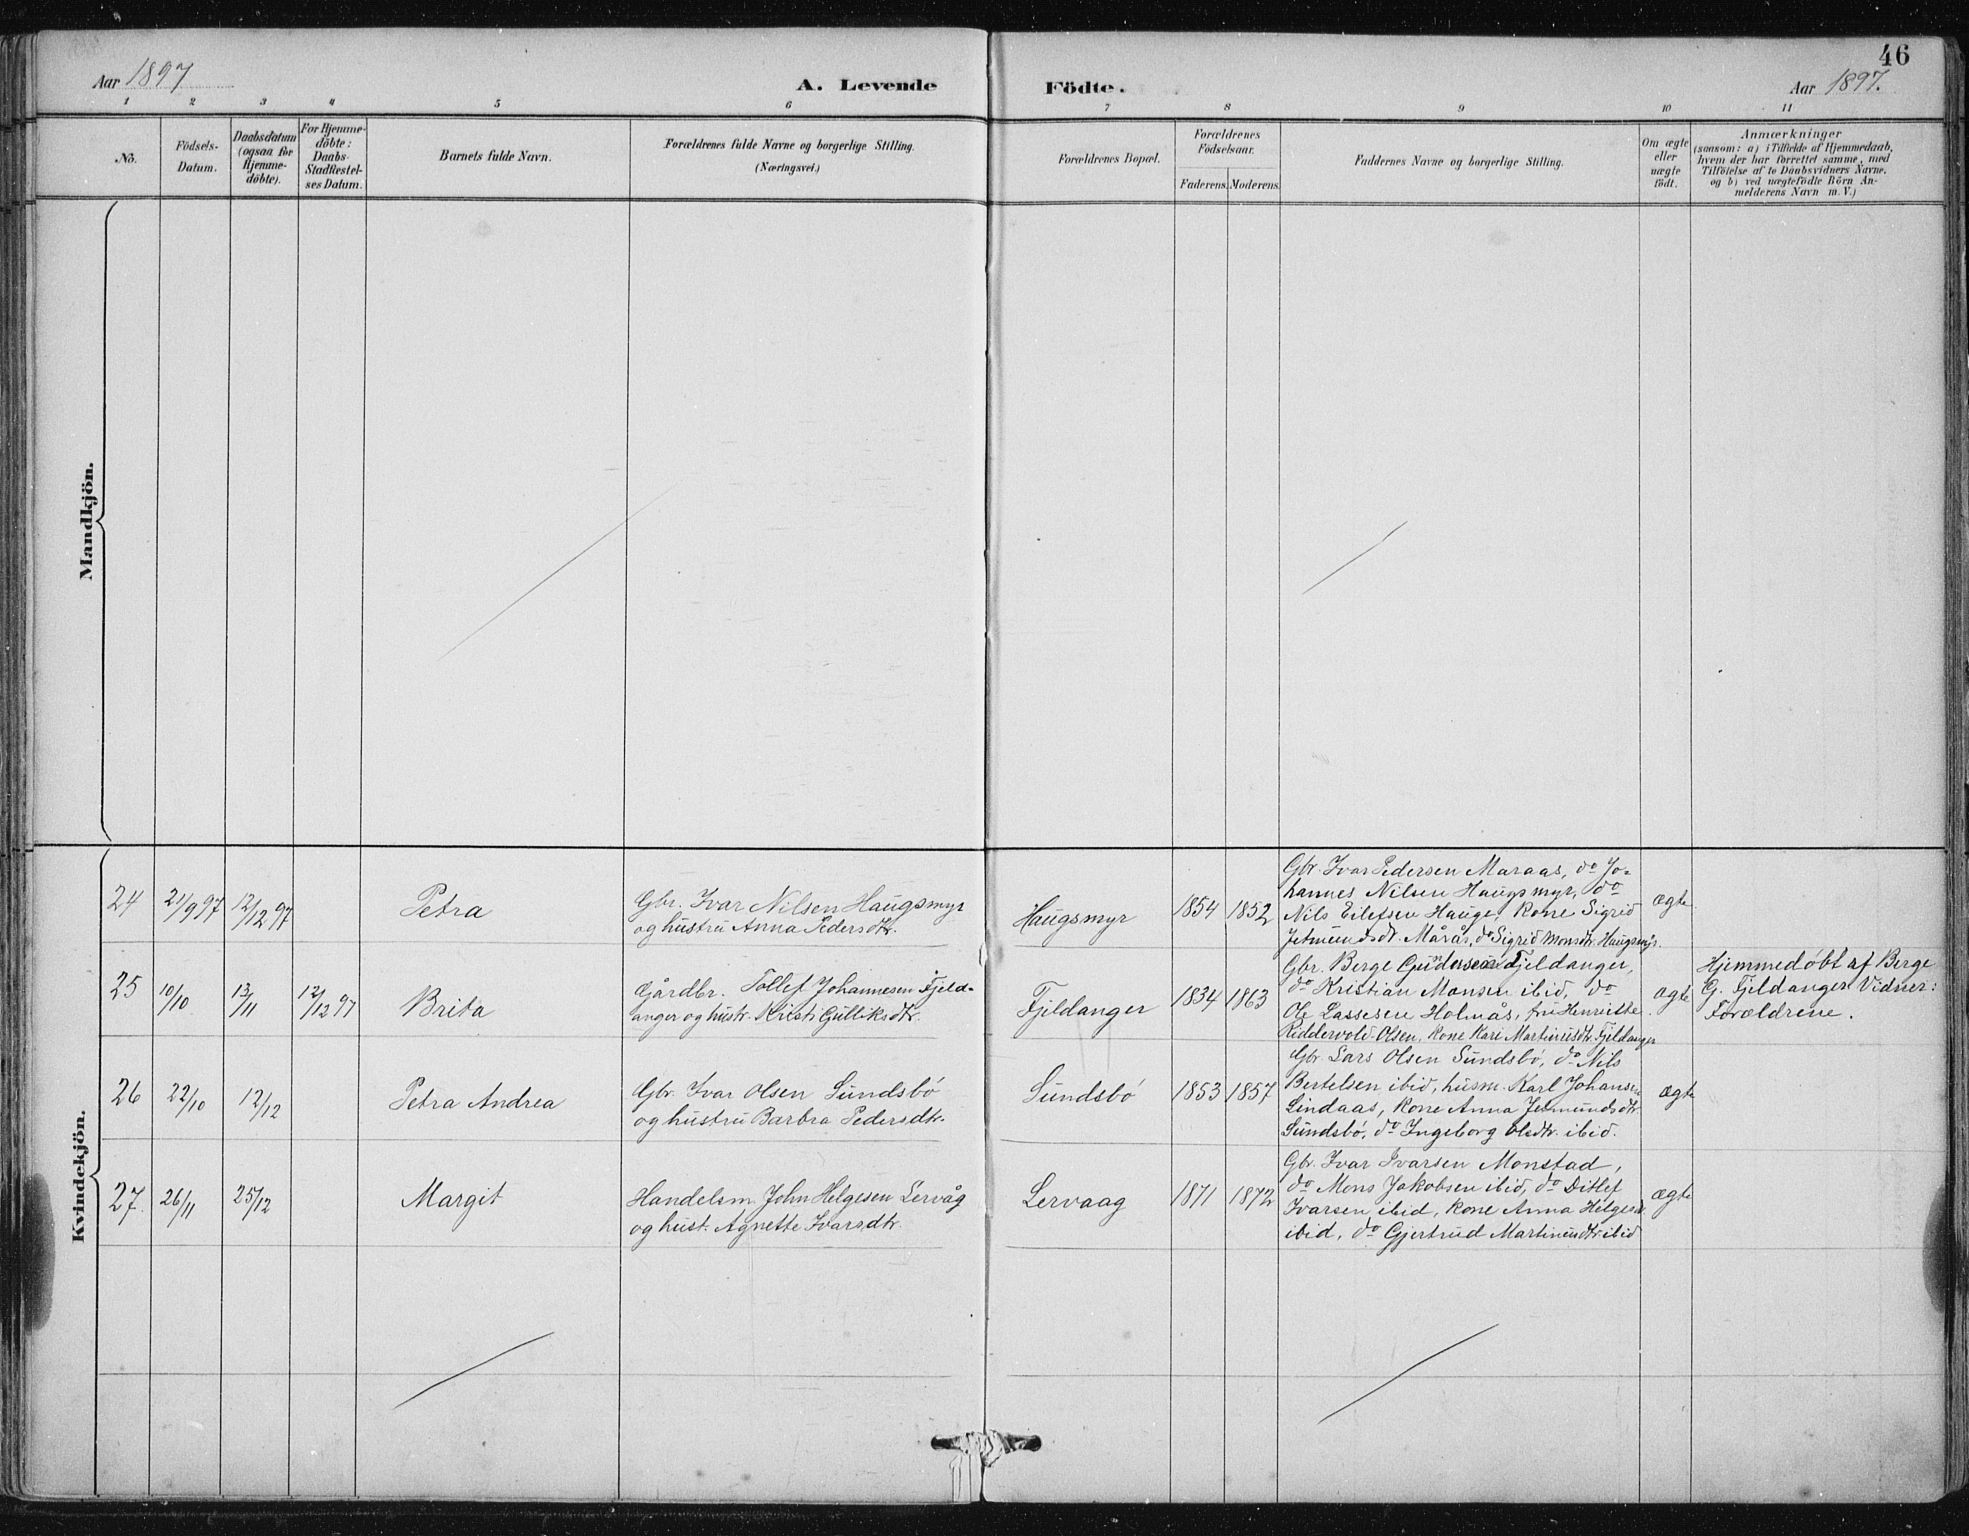 46
Aar 1897
A. Levende
Födte.
Aar 1897.
1 2 3 4 5 6 7 8 9 10 11
No.
Födsels-
Datum.
Daabsdatum
(ogsaa for
Hjemme-
döbte).
For Hjemme-
döbte:
Daabs-
Stadfæstel-
ses Datum.
Barnets fulde Navn.
Forældrenes fulde Navne og borgerlige Stilling.
(Næringsvei.)
Forældrenes Bopæl.
Forældrenes
Födselsaar.
Faderens. Moderens.
Faddernes Navne og borgerlige Stilling.
Om ægte
eller
uægte
födt.
Anmærkninger
(saasom: a) i Tilfælde af Hjemmedaab,
hvem der har forrettet samme, med
Tilföielse af to Daabsvidners Navne,
og b) ved uægtefödte Börn An-
melderens Navn m. V.)
Mandkjön.
Kvindekjön.
24
21/9 97
12/12 97
Petra
Gbr. Ivar Nilsen Haugsmyr
og hustru Anna Pedersdtr.
Haugsmyr
1854
1852
Gbr. Ivar Pedersen Maraas, do Jo-
hannes Nilsen Haugsmyr, do
Nils Eilefsen Hauge, kone Sigrid
Jetmundsdt. Mårås, do Sigrid Monsdtr. Haugsmyr.
ægte
25
10/10
13/11
12/12 97
Brita
Gårdbr. Tollef Johannesen Fjeld-
anger og hustr. Kristi Gulliksdtr.
Fjeldanger
1834
1863
Gbr. Berge Fjeldanger,
do Kristian Monsen ibid, do
Ole Lassesen Holmås, fru Henriette
Riddervold-Olsen, kone Kari Martinusdtr. Fjeldanger
ægte
Hjemmedøbt af Berge
G. Fjeldanger. Vidner:
Forældrene.
26
22/10
12/12
Petra Andrea
Gbr. Ivar Olsen Sundsbö
og hustru Barbra Pedersdtr.
Sundsbö
1853
1857
Gbr. Lars Olsen Sundsbö, do Nils
Bertelsen ibid, husm. Karl Johansen
Lindaas, kone Anna Jetmundsdtr.
Sundsbö, do Ingeborg Olsdtr. ibid.
ægte
27.
26/11
25/12
Margit
Handelsm. John Helgesen Lervåg
og hust. Agnette Ivarsdtr.
Lervaag
1871
1872
Gbr. Ivar Ivarsen Monstad,
do Mons Jakobsen ibid, do Ditlef
Ivarsen ibid, kone Anna Helgesd.
ibid, do Gjertrud Martinusdtr. ibid
ægte